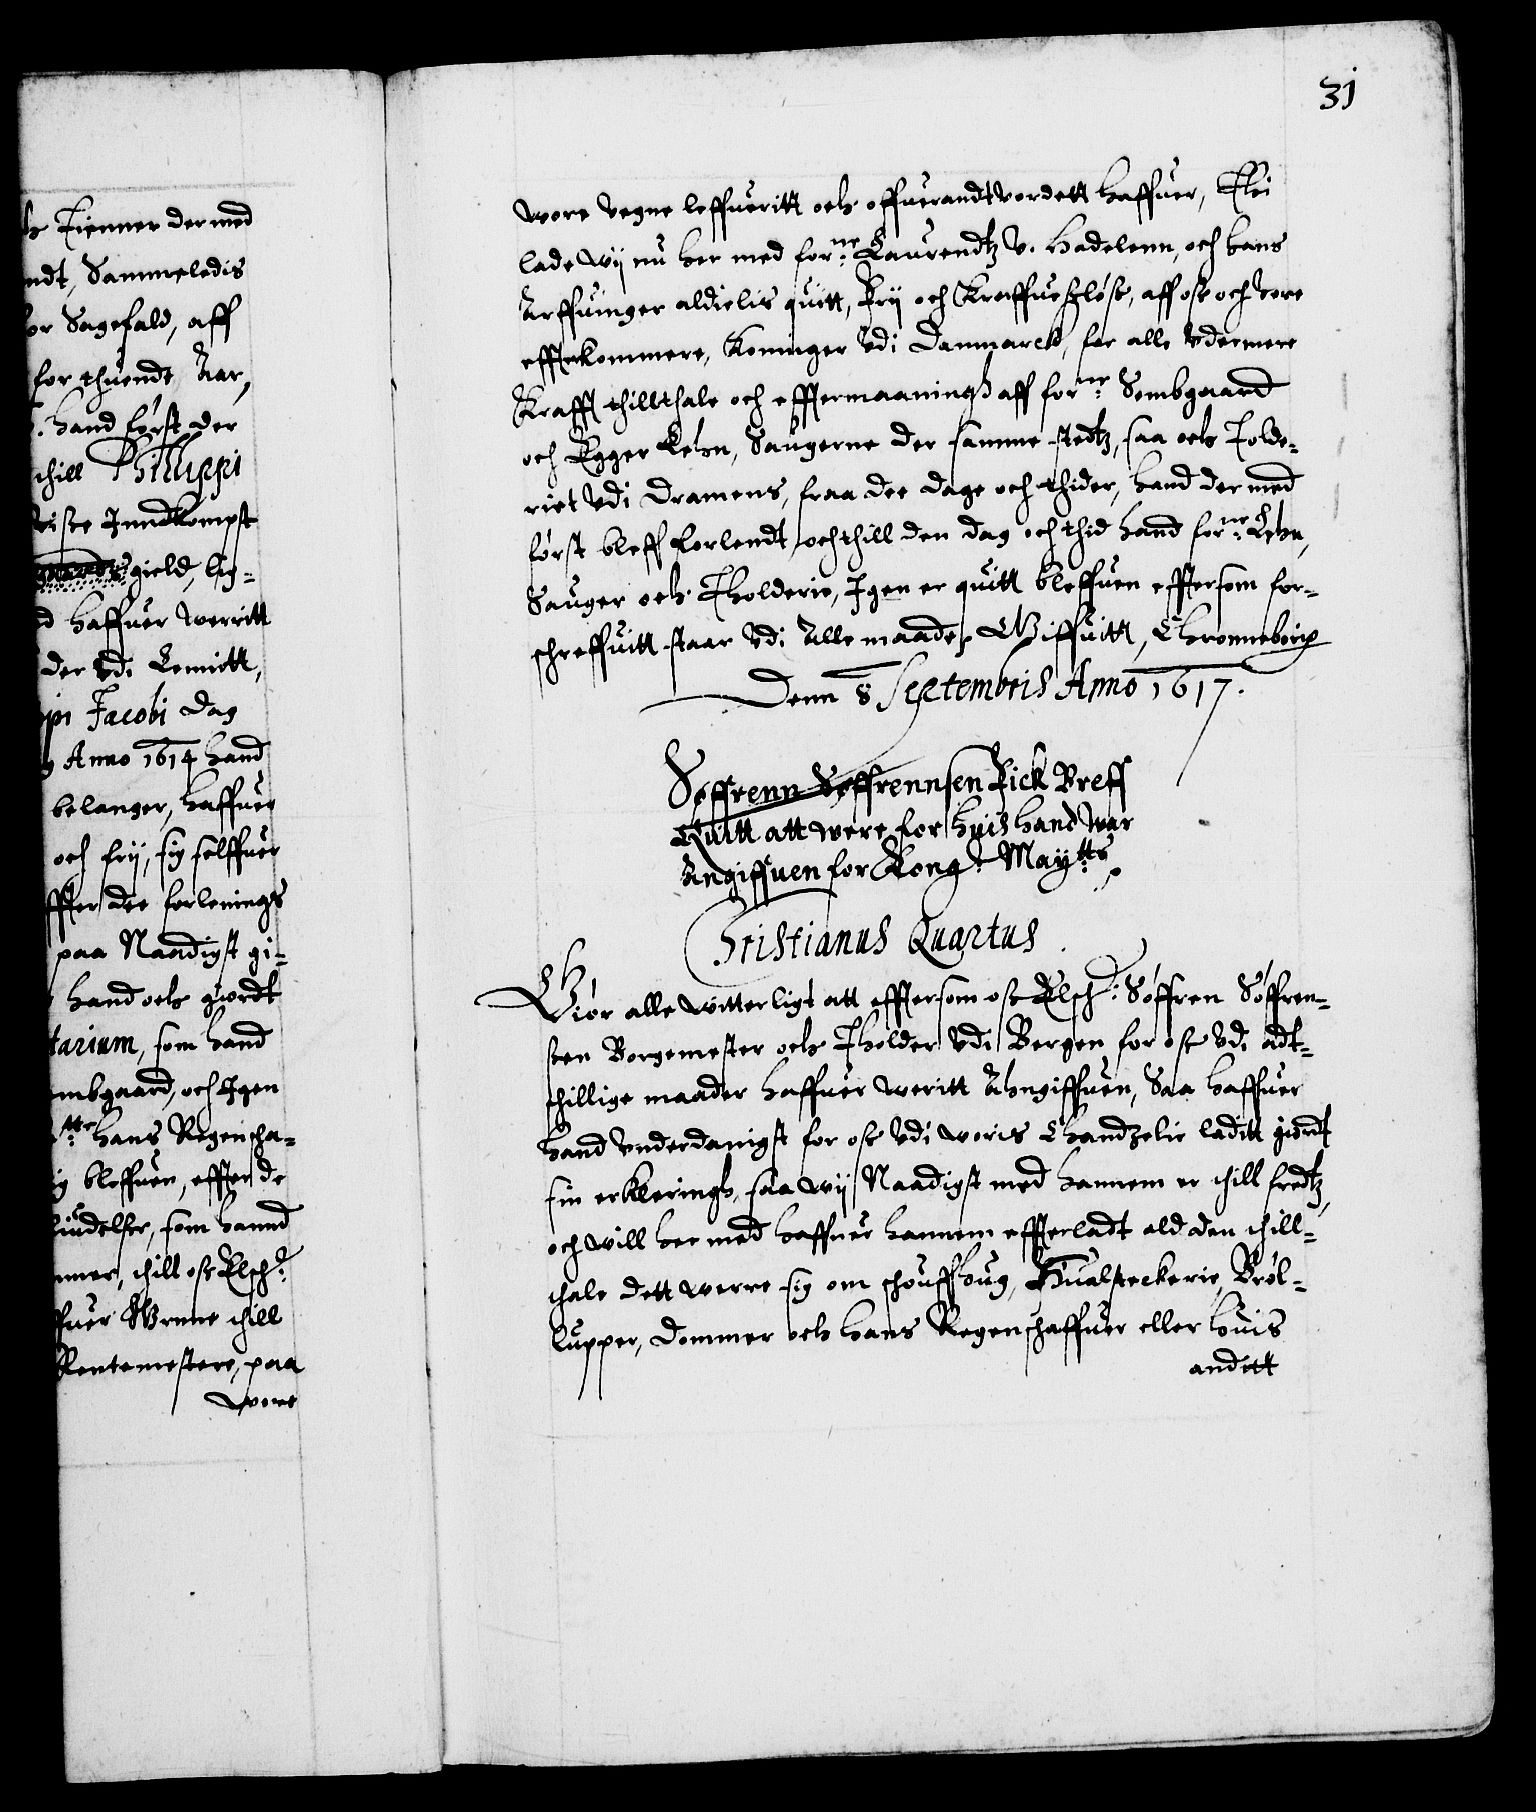 h Tienner der med
ndt, Sammeledis
or Sagefald, aff
for thuende Aar,
hand først der
thill Philippi
visse Inndkompst
gield, lig-
d haffuer werritt
der Vdi Lennitt,
ppi Jacobi dag
Anno 1614 hand
belanger, haffuer
och frij, sig selffuer
effter dee forlenings
paa Naadigst gi-
hand och giordt
tarium, som hand
mbgaard, och Igen
hans Regenscha-
ig bleffuen, effter de
som hannd
nner, thill oss Elsch:
ffuer Wrnne thill
Rentemestere, paa
wore
31
wore vegne leffueritt och offuerandtvordett haffuer, Thi
lade wij nu her med for:ne Laurendtz V. Hadelenn, och hans
Arffuinger aldielis quitt, Frij och Kraffuesløse, aff oss och vore
effterkommere, Koninger Vdi Danmarck, for alle Ydermere
Kraff thillthale och efftermaaningh aff for:ne Sembgaard
och Egger Lehn, Saugerne der samme stedtz, saa och Tolde-
riet Vdi Dramens, fraa dee dage och thider, hand der med
først bleff forlendt och thill den dag och thid hand for:ne Lehn,
Sauger och Tholderie, Igen er quitt bleffuen effter som for-
schreffuitt staar Vdi Alle maade, Giffuitt, Chronneborig
Denn 8 Septembris Anno 1617.
Søffrenn Søffrennsen Fick Breff
Quitt att were for huis hand war
Angiffuen for Kong: May:tts
Christianus Quartus
Giør alle witterligt att effter som oss Elsch: Søffren Søffren-
sen Borgemester och Tholder Vdi Bergen for oss Vdi adt-
schillige maader haffuer weritt Ahngiffuen, Saa haffuer
hand vnderdanigst for oss Vdi woris Chandzelie laditt giordt
sin erkleringh, saa wij Naadigst med hannem er thill fredtz,
och will her med haffuer hannem effterladt ald den thill-
thale dett werre sig om schouffhoug, Hualsteckerie, Brøl-
lupper, dommer och hans Regenschaffuer eller huis
anditt